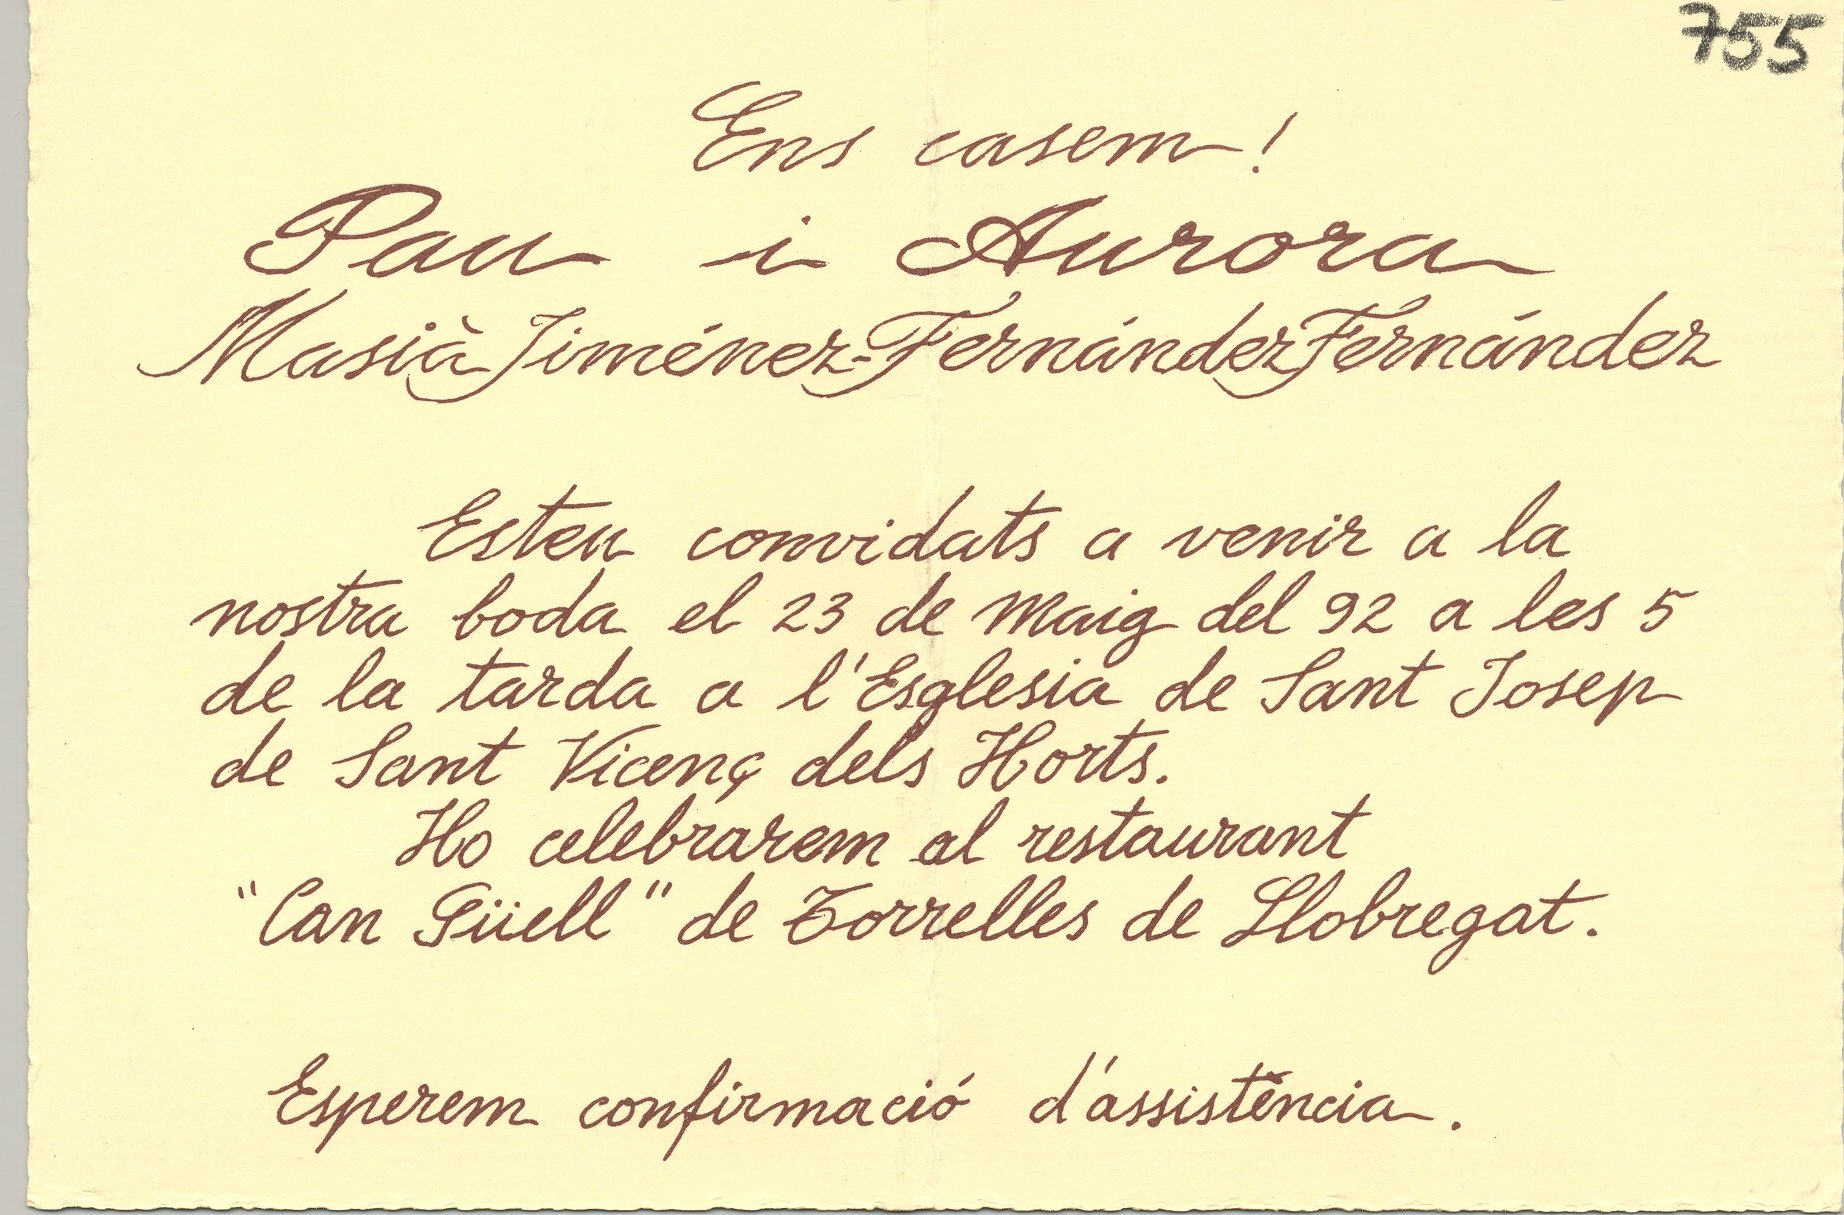 755
Ens casem!
Pau i Aurora
Masià Jiménez-Fernández Fernández
Esteu convidats a venir a la
nostra boda el 23 de Maig del 92 a les 5
de la tarda a l'Esglesia de Sant Josep
de Sant Vicenç dels Horts.
Ho celebrarem al restaurant
"Can Güell" de Torrelles de Llobregat.
Esperem confirmació d'assistència.